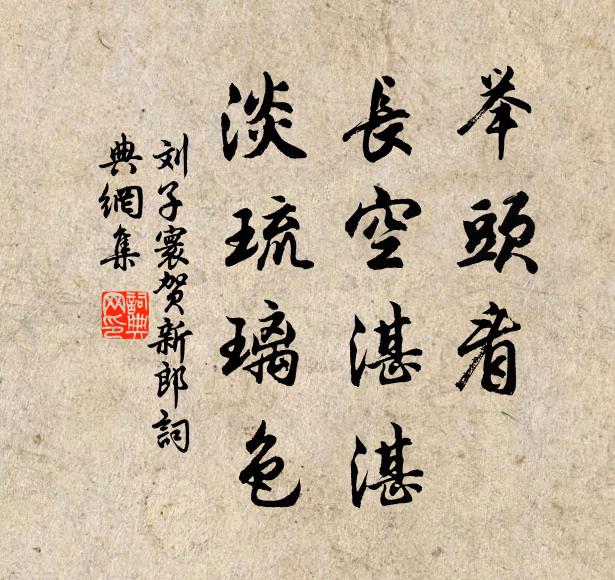 举頭看
長空湛湛
淡琉璃色
刘子寰贺新郎詞
典網集
詞典网印